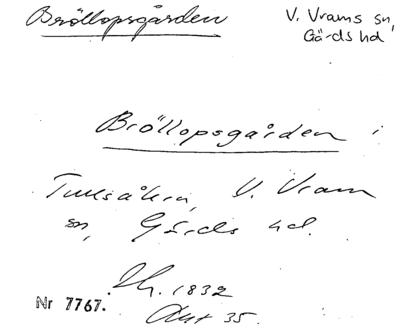 Bröllopsgården
V. Vrams sn,
Gärds hd
Bröllopsgården i
V. Vram
sn, Gärds hd.
1832
35.
Nr 7767.